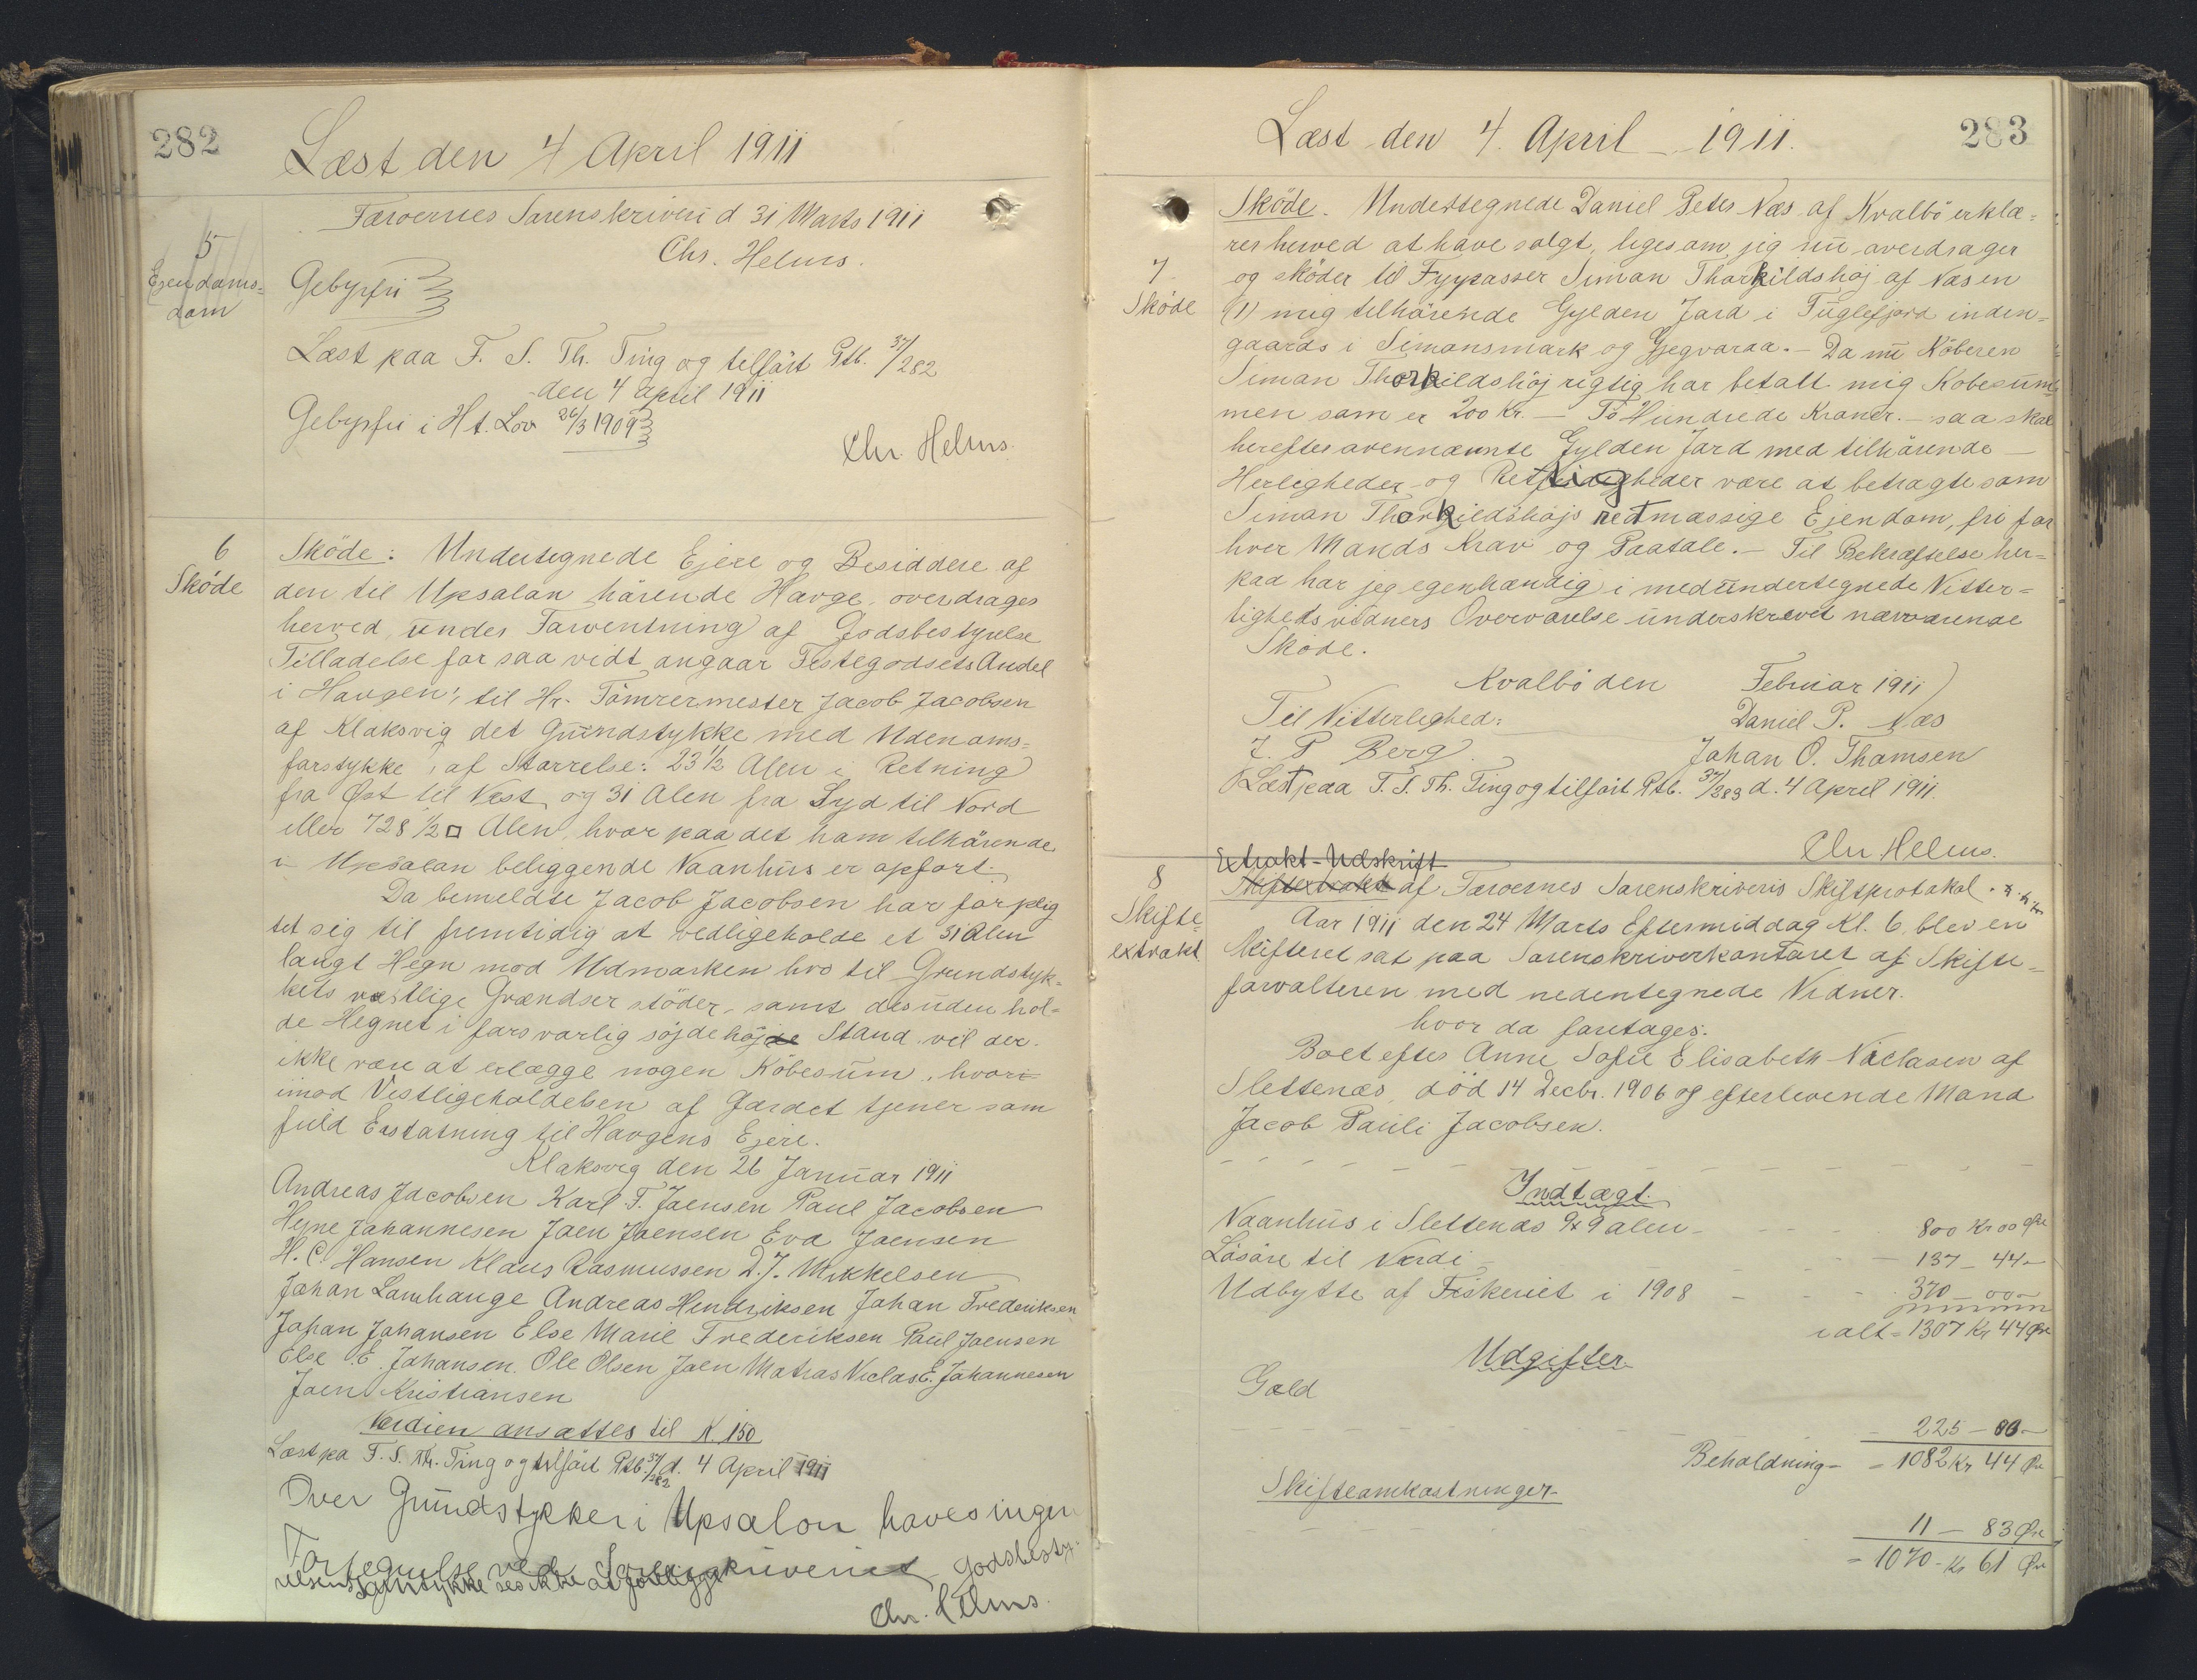 282
Læst den 4 April 1911
Færoernes Sorenskriveri d 31 Marts 1911
Chr. Helms.
5
Ejendoms-
dom
Gebyrfri
Læst paa F. S. Th. Ting og tilfört Ptb. 37/282
den 4 April 1911
Gebyrfri i Ht. Lov 26/3 1909
Chr. Helms.
6
Sköde
Sköde: Undertegnede Ejere og Besiddere af
den til Upsalon hörende Havge, overdrages
herved, under Forventning af Godsbestyrelse
Tilladelse for saa vidt angaar Festegodsets Andel
i Haugen, til Hr. Tömrermester Jacob Jacobsen
af Klaksvig det Grundstykke med Udenoms-
forstykke, af Störrelse: 23 1/2 Alen i Retning
fra Öst til Vest og 31 Alen fra Syd til Nord
eller 728 1/2 □ Alen hvor paa det ham tilhörende
i Upsalon beliggende Vaanhus er opfört.
Da bemeldte Jacob Jacobsen har forplig
tet sig til fremtidig at vedligeholde et 31 Alen
langt Hegn mod Udmarken hvo til Grundstyk-
kets vestlige Grændser stöder, samt desuden hol-
de Hegnet i forsvarlig söjdehöjde Stand, vil der
ikke være at erlægge nogen Köbesum, hvori
imod Vestligeholdelsen af Gardet tjener som
fuld Erstatning til Havgens Ejere.
Klaksvig den 26 Januar 1911
Andreas Jacobsen Karl F. Joensen Paul Jacobsen
Hejne Johannesen Joen Joensen Eva Joensen
H. C. Hansen Klaus Rasmussen D. J. Mikkelsen
Johan Lamhauge Andreas Hendriksen Johan Frederiksen
Johan Johansen Else Marie Frederiksen Paul Joensen
Else E. Johansen. Ole Olsen Joen Matras Niclas E. Johannesen
Joen Kristiansen
Værdien ansættes til K. 150
Læst pa F. S. Th. Ting og tilfört Ptb. 37/282 d. 4 April 1911
Over Grundstykker i Upsalon haves ingen
Fortegnelse ved Sorenskriveriet Godsbesty-
relsens Samtykke ses ikke at foreligge
Chr. Helms.
Læst den 4. April 1911.
283
7
Sköde
Sköde. Undertegnede Daniel Peter Næs af Kvalbö erklæ-
rer herved at have solgt, ligesom jeg nu overdrager
og sköder til Fyrpasser Simon Thorkildshöj af Næs en
(1) mig tilhörende Gylden Jord i Fuglefjord inden-
gaards i Simonsmark og Gjegvaraa. – Da nu Köberen
Simon Thorkildshöj rigtig har betalt mig Köbesum-
men som er 200 Kr. – To Hundrede Kroner. – saa skal
herefter ovennævnte Gylden Jord med tilhörende
Herligheder og Rettigheder være at betragte som
Simon Thorkildshöjs retmæssige Ejendom, fri for
hver Mands Krav og Paatale. – Til Bekræftelse her-
paa har jeg egenhændig i medundertegnede Vitter-
lighedsvidners Overværelse underskrevet nærværende
Sköde.
Kvalbö den Februar 1911
Til Vitterlighed: Daniel P. Næs
J. P Berg. Johan O. Thomsen
Læst paa F. S. Th. Ting og tilfört Ptb. 37/283 d. 4 April 1911.
Chr Helms.
8
Skifte-
extrakt
Extrakt-Udskrift
Skifteextrakt af Færoernes Sorenskriveris Skifteprotokol
Aar 1911 den 24 Marts Eftermiddag Kl. 6, blev en
Skifteret sat paa Sorenskriverkontoret af Skifte-
forvalteren med nedentegnede Vidner.
hvor da foretages:
Boet efter Anne Sofie Elisabeth Niclasen af
Slettenæs, död 14 Decbr. 1906 og efterlevende Mand
Jacob Pauli Jacobsen.
Indtægt.
Vaanhus i Slettenæs 9x9 alen - 800 Kr 00 Øre
Lösöre til Værdi - 137 - 44 -
Udbytte af Fiskeriet i 1908 - 370 - 00 -
ialt = 1307 Kr 44 Øre
Udgifter
Gæld
225 - 00 -
Beholdning - = 1082 Kr 44 Øre
Skifteomkostninger -
11 - 83 Øre
= 1070 - Kr 61 Øre